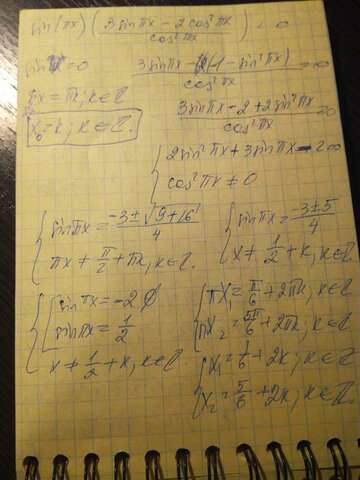 sin(πx) (3sinπx - 2cos²πx / cos²πx) = 0
sin = 0
3sinπx - 2(1 - sin²πx) / cos²πx = 0
πx = πk; k∈ℤ
3sinπx - 2 + 2sin²πx / cos²πx = 0
x₀ = k; k∈ℤ.
{ 2sin²πx + 3sinπx - 2 = 0
cos²πx ≠ 0
{ sinπx = -3 ± √9+16 / 4
{ sinπx = -3±5 / 4
πx ≠ π/2 + πk, k∈ℤ.
x ≠ 1/2 + k, k∈ℤ.
{ [ sinπx = -2 ∅
sinπx = 1/2
x ≠ 1/2 + k, k∈ℤ.
{ πx₁ = π/6 + 2πk; k∈ℤ
πx₂ = 5π/6 + 2πk; k∈ℤ
{ x₁ = 1/6 + 2k; k∈ℤ
x₂ = 5/6 + 2k; k∈ℤ.